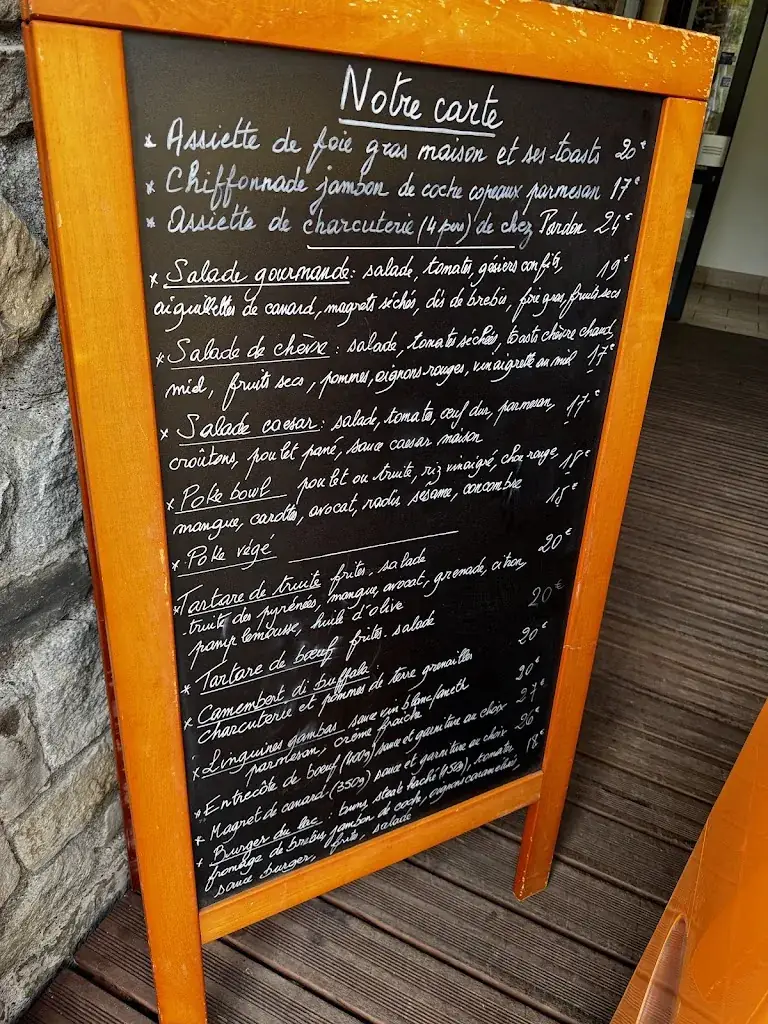 Notre carte
* Assiette de foie gras maison et ses toasts 20€
* Chiffonnade jambon de coche copeaux parmesan 17€
* Assiette de charcuterie (4 pers) de chez 24€
* Salade gourmande : salade, tomates, gésiers confits, 19€
aiguillettes de canard, magrets séchés, dés de brebis, foie gras, fruits secs
* Salade de chèvre : salade, tomates séchées, toasts chèvre chaud,
miel, fruits secs, pommes, oignons rouges, vinaigrette au miel 17€
* Salade caesar : salade, tomates, œuf dur, parmesan, 17€
croûtons, poulet pané, sauce caesar maison
* Poke bowl poulet ou truite, riz vinaigré, chou rouge, 18€
mangue, carottes, avocat, radis sésame, concombre 15€
* Poke végé
* Tartare de truite frites, salade 20€
truite des pyrénées, mangue, avocat, grenade, citron,
pamplemousse, huile d'olive 20€
* Tartare de bœuf frites, salade
* Camembert di buffala : 20€
charcuterie et pommes de terre grenailles
* Linguines gambas sauce vin blanc/aneth 20€
parmesan, crème fraîche
* Entrecôte de bœuf sauce et garniture au choix 27€
* Magret de canard (350g) sauce et garniture au choix 26€
* Burger du lac : buns, steak haché (150g), tomates 18€
fromage de brebis, jambon de coche, oignons caramélisés,
sauce burger, frites, salade